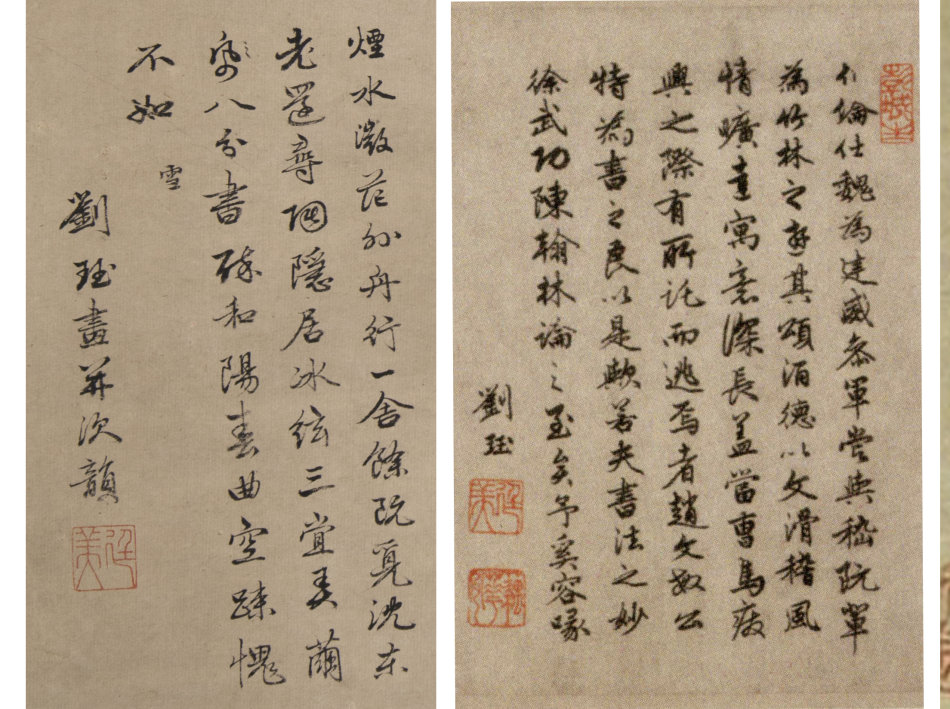 煙水微茫外舟行一舍餘既覓沈東
老還尋陶隱居冰絃三疊弄繭
帋八分書和陽春曲空踈愧
不如
雪
劉珏畫并次韻
廷美
伯倫仕魏為建威參軍嘗與嵇阮輩
為竹林之遊其頌酒德以文滑稽風
情曠達寓意深長蓋當曹馬廢
興之際有所託而逃焉者趙文敏公
特為書之良以是歟若夫書法之妙
徐武功陳翰林論之至矣予奚容喙
劉珏
廷美